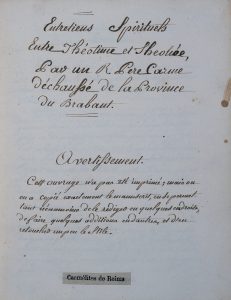 Entretiens Spirituels
Entre Théotime et Theotée,
Par un R. Pere Carme
déchaussé de la Province
du Brabant.
Avertissement.
Cet ouvrage n'a pas été imprimé; mais on
en a copié exactement le manuscrit, en se permet-
tant néanmoins de le rédiger en quelques endroits,
de faire quelques additions en d'autres, et d'en
retoucher un peu le stile.
Carmélites de Reims